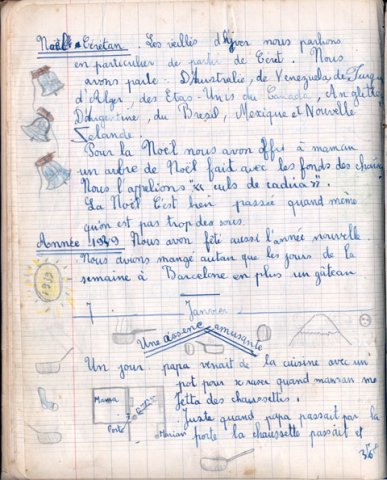 Noël Cérétan. Les veillés d'hiver nous parlions
en particulier de partir de Céret. Nous
avons parlé: D'Australie, de Venezuela, de
d'Alger, des Etas-Unis du Canada, Anglette
D'argentine, du Bresil, Mexique et Nouvelle
Zelande.
Pour la Noël nous avon offri à maman
un arbre de Noël fait avec les fonds des chaises
Nous l'appelions "culs de cadira".
La Noël c'est bien passée quand même
qu'on est pas trop des sous.
Année 1939 Nous avon fété aussi l'année nouvelle.
Nous avons mangé autan que les jours de la
semaine à Barcelone en plus un gâteau
1939
7 Janvier
Une amusante
Un jour papa venait de la cuisine avec un
pot pour se raser quand maman me
jetta des chaussettes.
Mama
Porte
Juste quand papa passait par la
porte la chaussette passait et
36